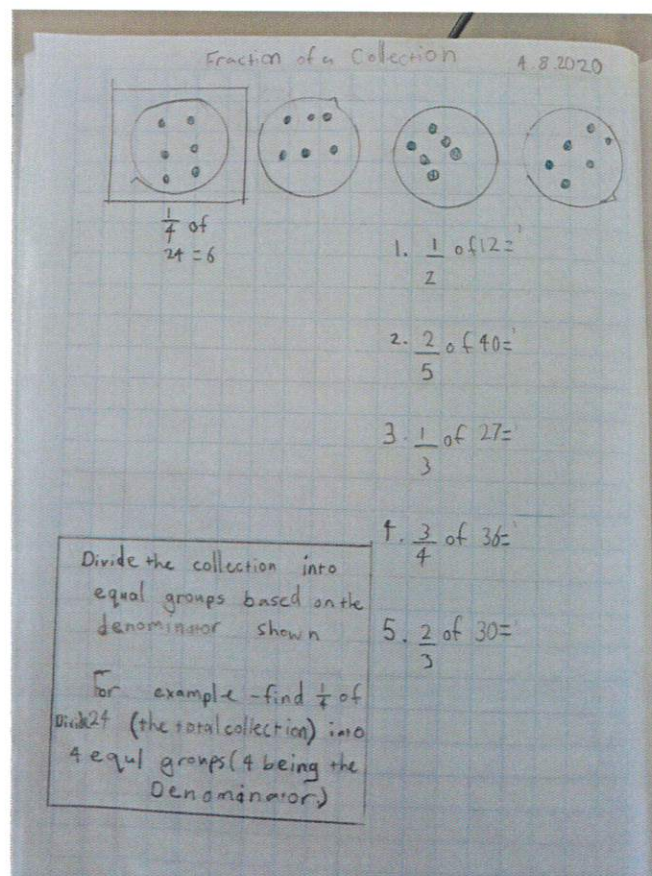 Fraction of a Collection 4.8.2020
1/4 of
24 = 6
1. 1/2 of 12=
2. 2/5 of 40=
3. 1/3 of 27=
4. 3/4 of 36=
5. 2/3 of 30=
Divide the collection into
equal groups based on the
denominator shown
For example - find 1/4 of
Divide 24 (the total collection) into
4 equl groups (4 being the
Denominator)